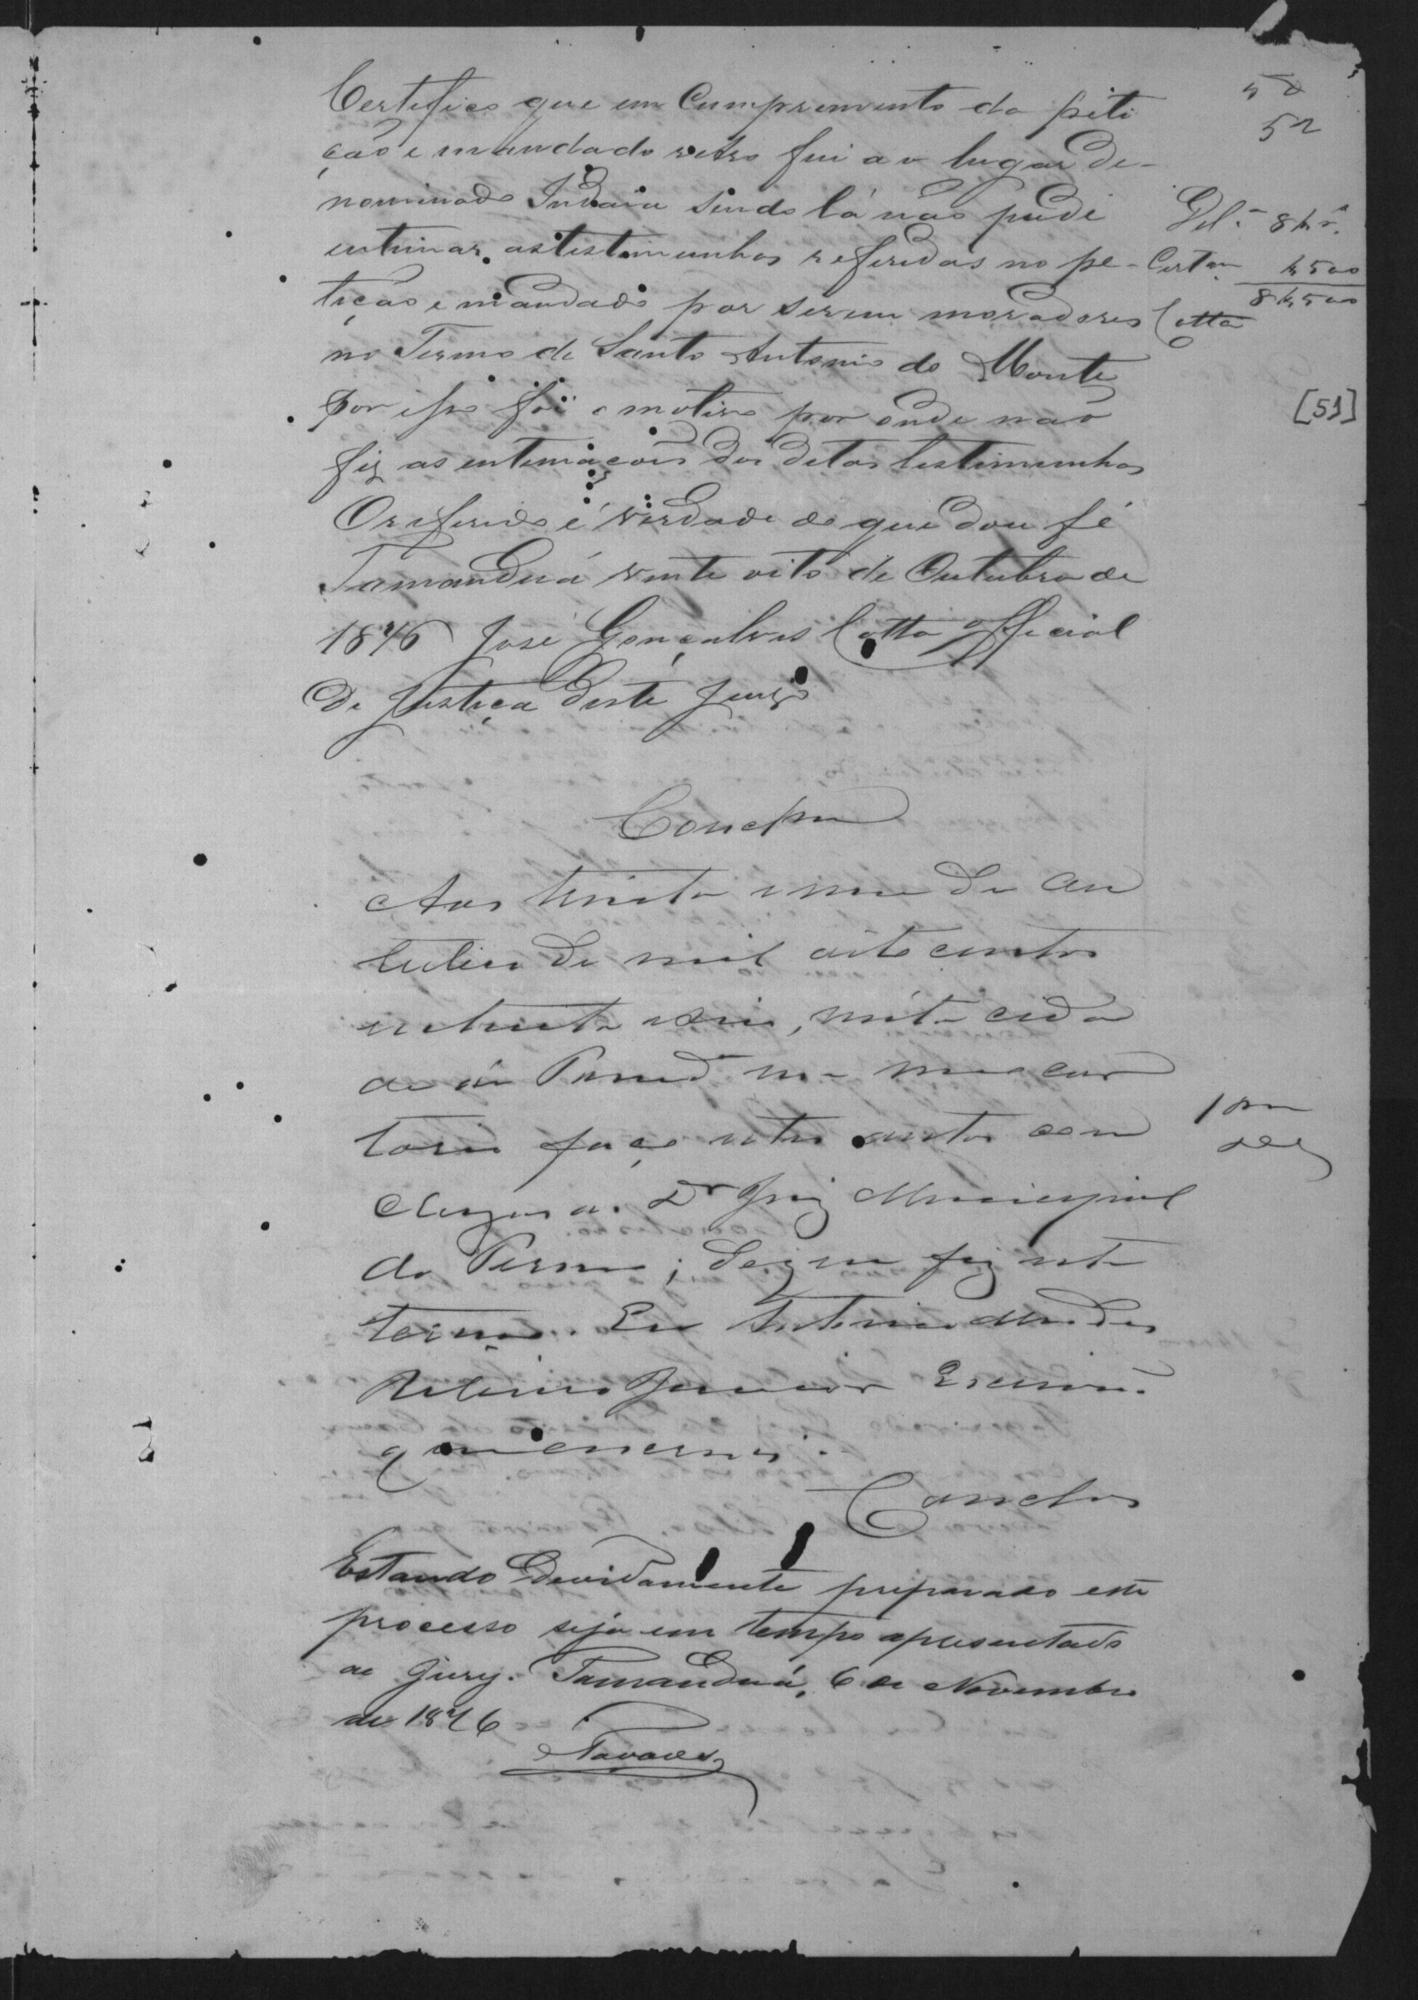 50
52
Certifico que em Cumprimento da peti
ção e mandado retro fui ao lugar De-
nominado Indaia sendo lá não pude
intimar as testimunhas referidas no pe-
tição e mandado por serem moradores
no Termo de Santo Antonio do Monte
por isso foi o motivo por onde não
fiz as intimações das ditas testimunhas
O referido é verdade do que dou fé
Tamanduá vinte oito de Outubro de
1876 José Gonçalves Cotta official
De Justiça deste Juizo
Certam 2500
8500
Cotta
[51]
Concl.m
Aos trinta e um de Ou
tubro de mil oito centos
e setenta e seis, nesta cida
de de Tamd.á em meu car
torio faço estes autos con
clusos ao Dr Juiz Municipal
do Termo; do que fiz este
termo. Eu Antonio
Ribeiro Junior Escrivão
que escrevi.
Conclos
Estando devidamente preparado este
processo seja em tempo apresentado
ao Jury. Tamanduá, 6 de Novembro
de 1876
Tavares